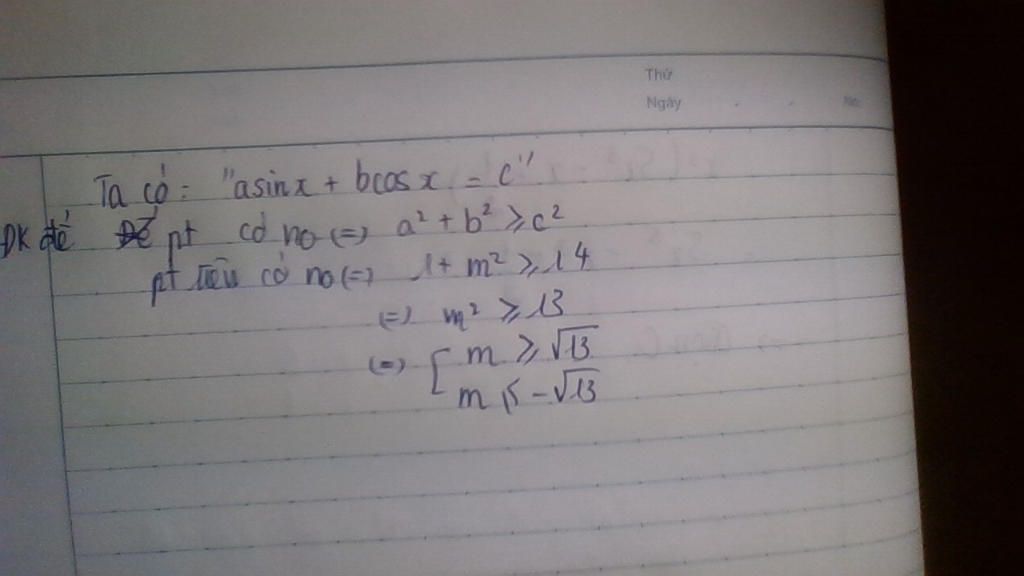 Thứ
Ngày
No
Ta có: "asinx + bcosx = c"
ĐK để pt có no (=) a² + b² ⩾ c²
pt trên có no (=) 1 + m² ⩾ 14
(=) m² ⩾ 13
(=) [ m ⩾ √13
m ⩽ -√13